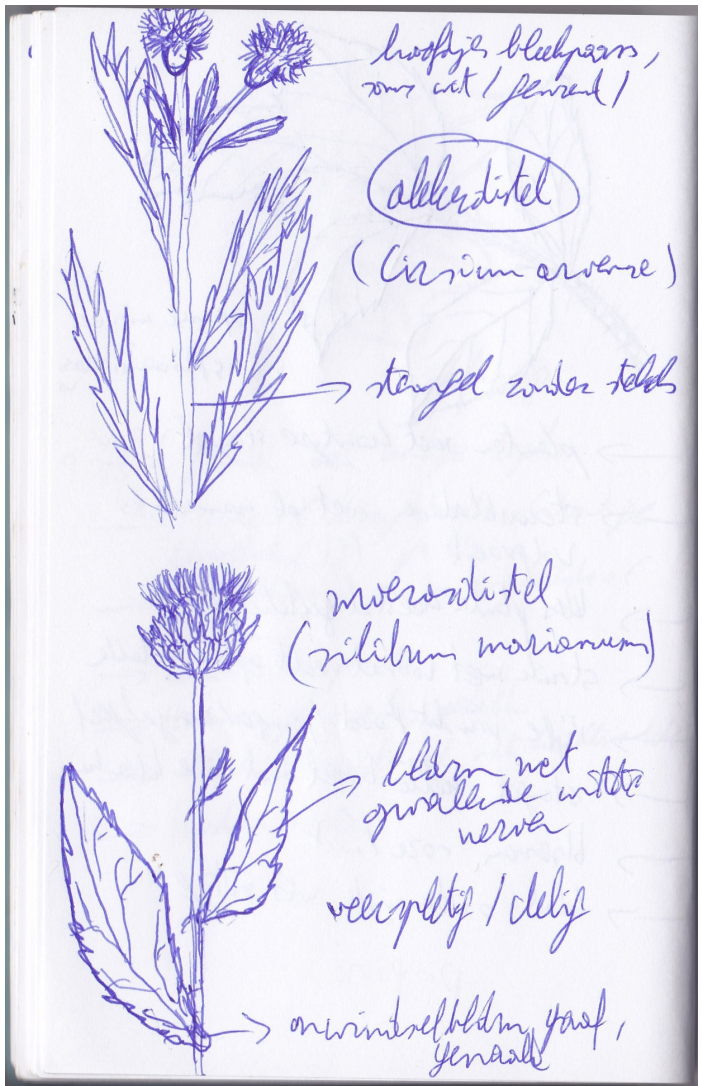 hoofdjes bleekpaars,
soms wit / geurend /
akkerdistel
(Cirsium arvense)
stengel zonder stekels
moerasdistel
(silibum marianum)
bldrn met
opvallende witte
nerven
veerspletig / delig
omwindselbldrn gaaf,